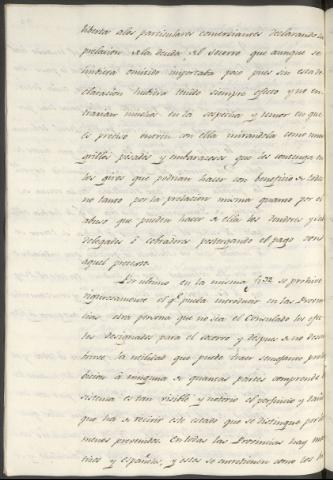 libertar alos particulares comerciantes declarando la
prelacion de la deuda del Socorro que aunque se
hubiera omitido importaba poco pues sin esta de
claracion hubiera tenido siempre efecto y no en
trarian muchos en la sospecha y temor en que
es preciso entren con ella mirandola como unos
grillos pesados y embarazosos que los contenga en
los giros que podrian hacer con beneficio de todos
no tanto por la prelacion misma quanto por el
abuso que pueden hacer de ella los deudores y sus
delegados ó cobradores postergando el pago con
aquel pretexto.
Por ultimo en la misma se prohive
rigurosamente el q.e pueda introducir en las Provin
cias otra persona que no sea el Consulado los efec
tos designados para el socorro y despues de no descu
brirse la utilidad que pueda traer semejante prohi
bicion á ninguna de quantas partes comprende el
sistema es tan visible y notorio el perjuicio y daño
que ha de recivir este estado que se distingue por lo
menos pretendidos. En todas las Provincias hay mes
tizos y españoles, y estos se mantienen como los